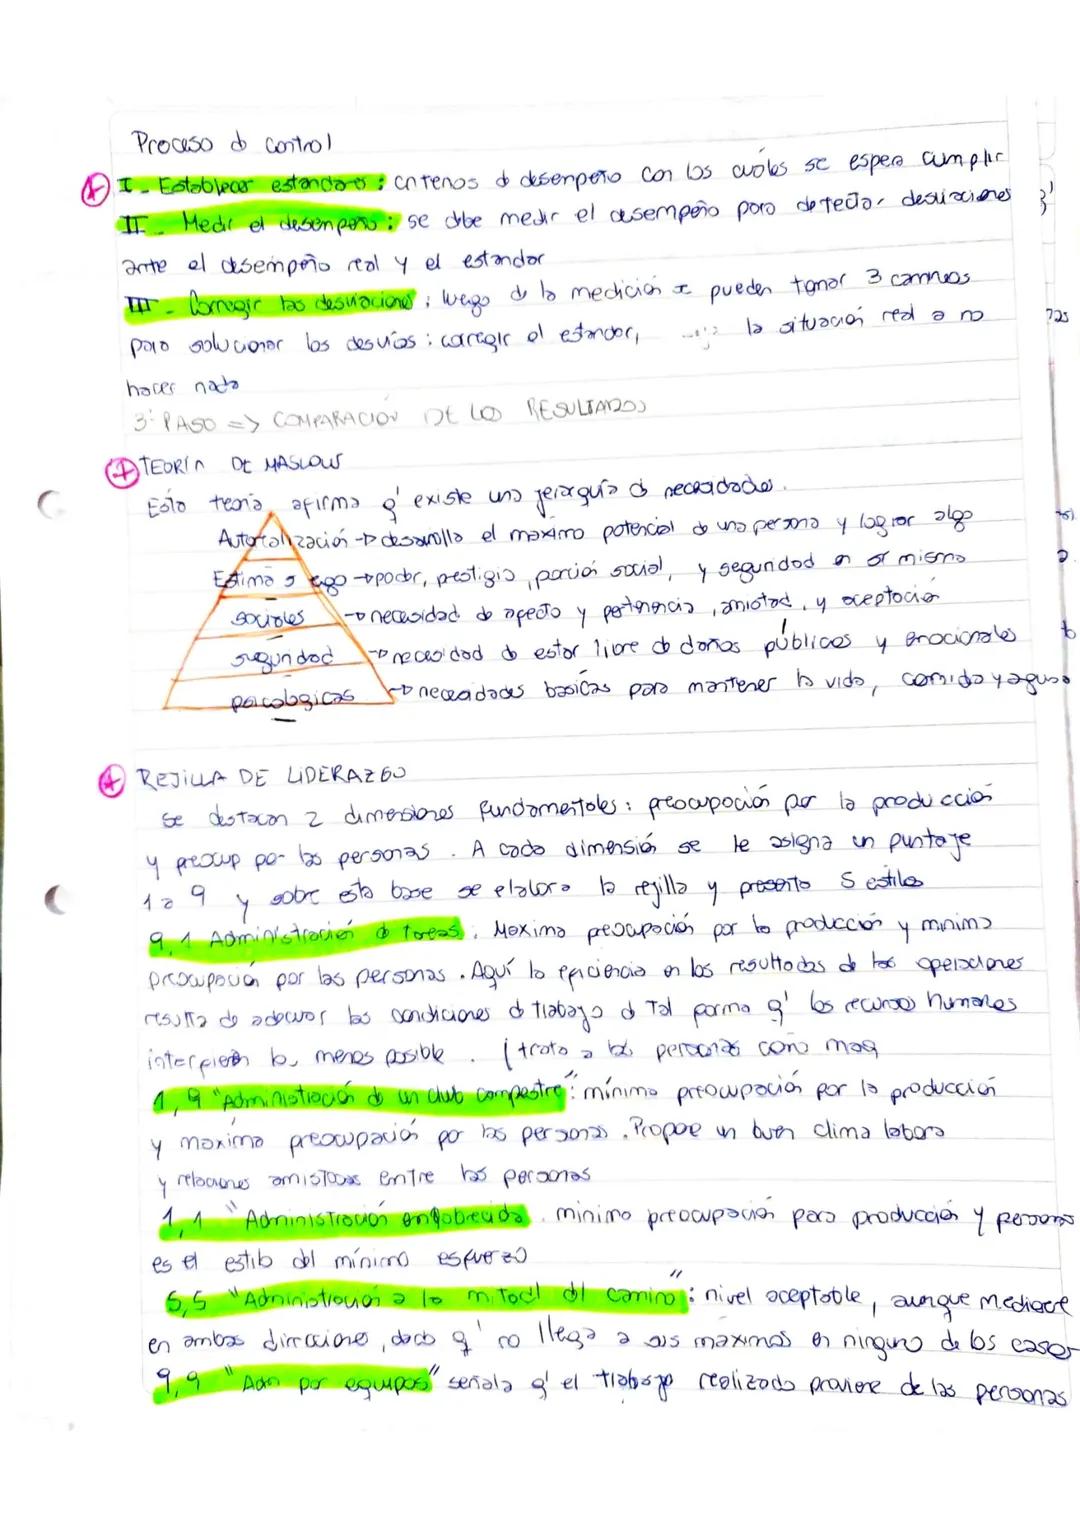 Proceso d control
I - Establecer estandares : criterios d desempeño con los cuales se espera cumplir
II - Medir el desempeño : se debe medir el desempeño para detectar desviaciones
ante el desempeño real y el estandar
III - Corregir las desviaciones ; luego d la medición se pueden tomar 3 caminos
para solucionar los desvios : corregir el estandar, la situación real o no
hacer nada
3º PASO => COMPARACION DE LOS RESULTADOS
TEORIA DE MASLOW
Esta teoria afirma q' existe una jerarquía d necesidades.
Autorealización → desarrolla el maximo potencial de una persona y lograr algo
Estima o ego → poder, prestigio, porción social, y seguridad en si mismo
sociales → necesidad de afecto y pertenencia, amistad, y aceptación
seguridad → necesidad de estar libre de daños públicos y emocionales
psicologicas → necesidades basicas para mantener la vida, comida y agua
REJILLA DE LIDERAZGO
se destacan 2 dimensiones fundamentales : preocupación por la producción
y preocup por las personas. A cada dimensión se le asigna un puntaje
1 a 9 y sobre esta base se elabora la rejilla y presenta 5 estilos
9,1 Administración d tareas : Maxima preocupación por la producción y minima
preocupación por las personas. Aquí la eficiencia en los resultados de las operaciones
resulta de adecuar las condiciones d trabajo d tal forma q' los recursos humanos
interfieren lo menos posible. (trata a las personas como maq
1,9 "Administración de un club campestre": mínima preocupación por la producción
y maxima preocupación por las personas. Propone un buen clima labora
y relaciones amistosas entre las personas
1,1 "Administración empobrecida. minimo preocupación para producción y personas
es el estilo del mínimo esfuerzo
5,5 "Administración a la mitad del camino": nivel aceptable, aunque mediocre
en ambas direcciones, dado q' no llega a sus maximos en ninguno de los casos
9,9 "Adm por equipos" señala q' el trabajo realizado proviene de las personas